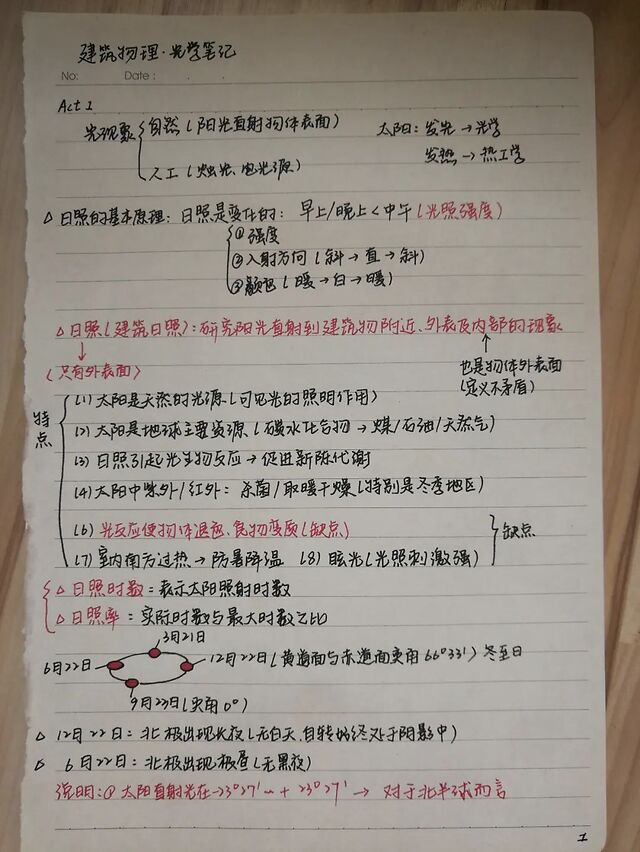 建筑物理·光学笔记
No: Date: . .
Act 1
光现象 自然(阳光直射物体表面) 太阳:发光→光学
发热→热工学
人工(烛光、电光源)
△日照的基本原理:日照是变化的:早上/晚上<中午(光照强度)
①强度
②入射方向(斜→直→斜)
③颜色(暖→白→暖)
△日照(建筑日照):研究阳光直射到建筑物附近、外表及内部的现象
↓ ↑
(只有外表面) 也是物体外表面
(定义不矛盾)
特点
(1)太阳是天然的光源(可见光的照明作用)
(2)太阳是地球主要资源(碳水化合物→煤/石油/天然气)
(3)日照引起光生物反应→促进新陈代谢
(4)太阳中紫外/红外:杀菌/取暖干燥(特别是冬季地区)
(6)光反应使物体退色、食物变质(缺点)
缺点
(7)室内南方过热→防暑降温 (8)眩光(光照刺激强)
△日照时数:表示太阳照射时数
△日照率:实际时数与最大时数之比
3月21日
6月22日 12月22日(黄道面与赤道面夹角66°33′)冬至日
9月23日(夹角0°)
△ 12月22日:北极出现长夜(无白天,自转始终处于阴影中)
△ 6月22日:北极出现极昼(无黑夜)
说明:①太阳直射光在-23°27′~+23°27′→对于北半球而言
1